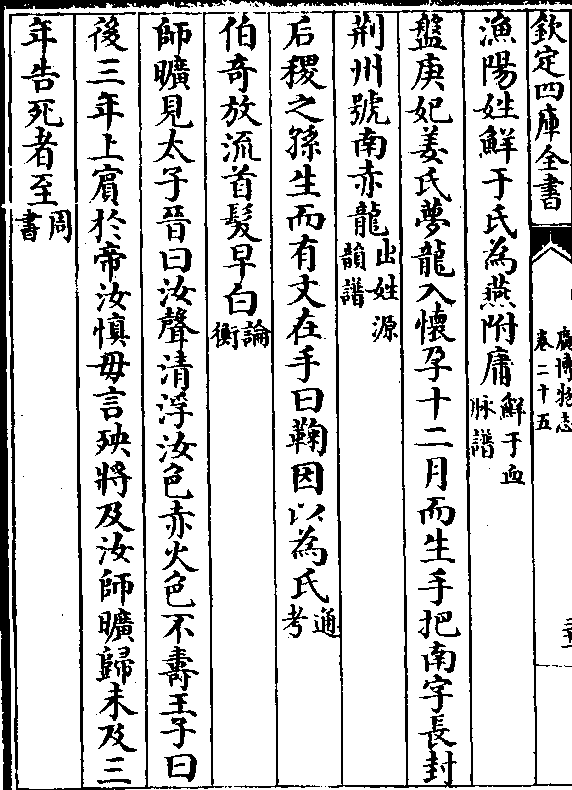 欽定四庫全書
廣博物志
卷二十五
漁陽姓鮮于氏為燕附庸鮮于血脉譜
盤庚妃姜氏夢龍入懷孕十二月而生手把南字長封
荆州號南赤龍出姓源韻譜
后稷之孫生而有文在手曰鞠因以為氏通考
伯奇放流首髪早白論衡
師曠見太子晉曰汝聲清浮汝色赤火色不壽王子曰
後三年上賔於帝汝慎毋言殃將及汝師曠歸未及三
年告死者至周書